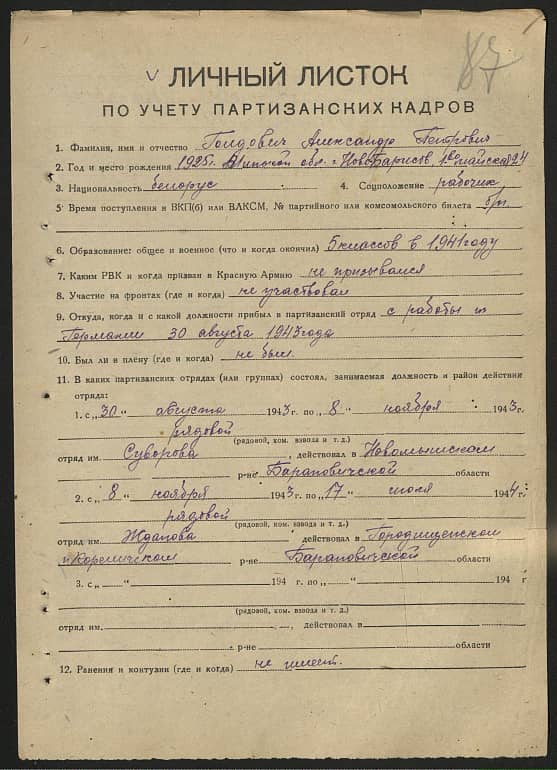 87
V ЛИЧНЫЙ ЛИСТОК
ПО УЧЕТУ ПАРТИЗАНСКИХ КАДРОВ
1. Фамилия, имя и отчество Голдович Александр Петрович
2. Год и место рождения 1925г. Минской обл. г. Новоборисов,
3. Национальность белорус 4. Соцположение рабочий
5. Время поступления в ВКП(б) или ВЛКСМ, № партийного или комсомольского билета б/п
6. Образование: общее и военное (что и когда окончил) 5 классов в 1941 году
7. Каким РВК и когда призван в Красную Армию не призывался
8. Участие на фронтах (где и когда) не участвовал
9. Откуда, когда и с какой должности прибыл в партизанский отряд с работы
Германии 30 августа 1943 года
10. Был ли в плену (где и когда) не был
11. В каких партизанских отрядах (или группах) состоял, занимаемая должность и район действия
отряда:
1. с „30" августа 1943 г. по „8" ноября 1943 г.
рядовой
(рядовой, ком. взвода и т. д.)
отряд им. Суворова, действовал в Новомышском
р-не Барановичской области
2. с „8" ноября 1943 г. по „17" июля 1944 г.
рядовой
(рядовой, ком. взвода и т. д.)
отряд им Жданова действовал в Городищенском
и Кореличском р-не Барановичской области
3. с „ " 194 г. по „ " 194 г
(рядовой, ком. взвода и т. д.)
отряд им. , действовал в
р-не области
12. Ранения и контузии (где и когда) не имеет.